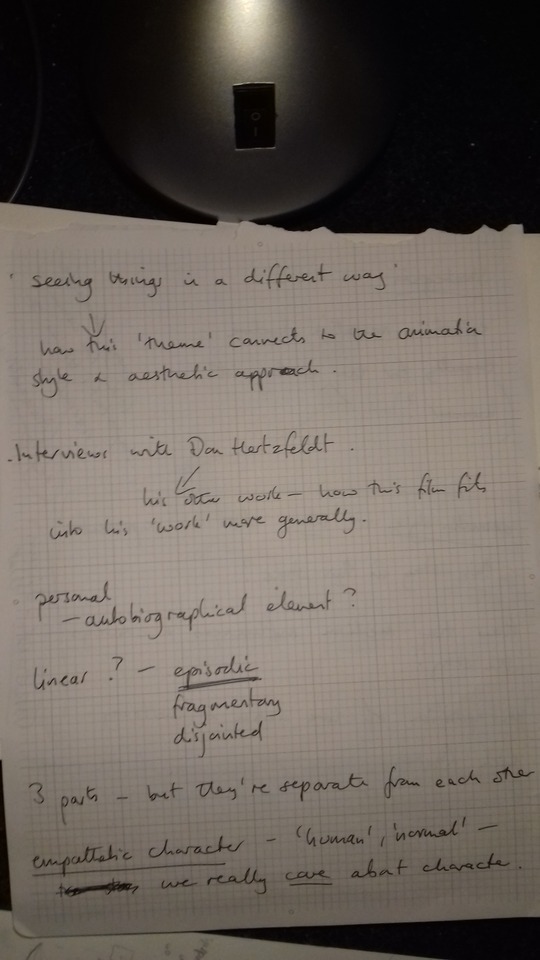 'seeing things in a different way'
how this 'theme' connects to the animation
style & aesthetic approach.
. Interviews with Don Hertzfeldt.
his other work – how this film fits
into his 'work' more generally.
personal
– autobiographical element?
linear? – episodic
fragmentary
disjointed
3 parts – but they're separate from each other
empathetic character – 'human', 'normal' –
we really care about character.